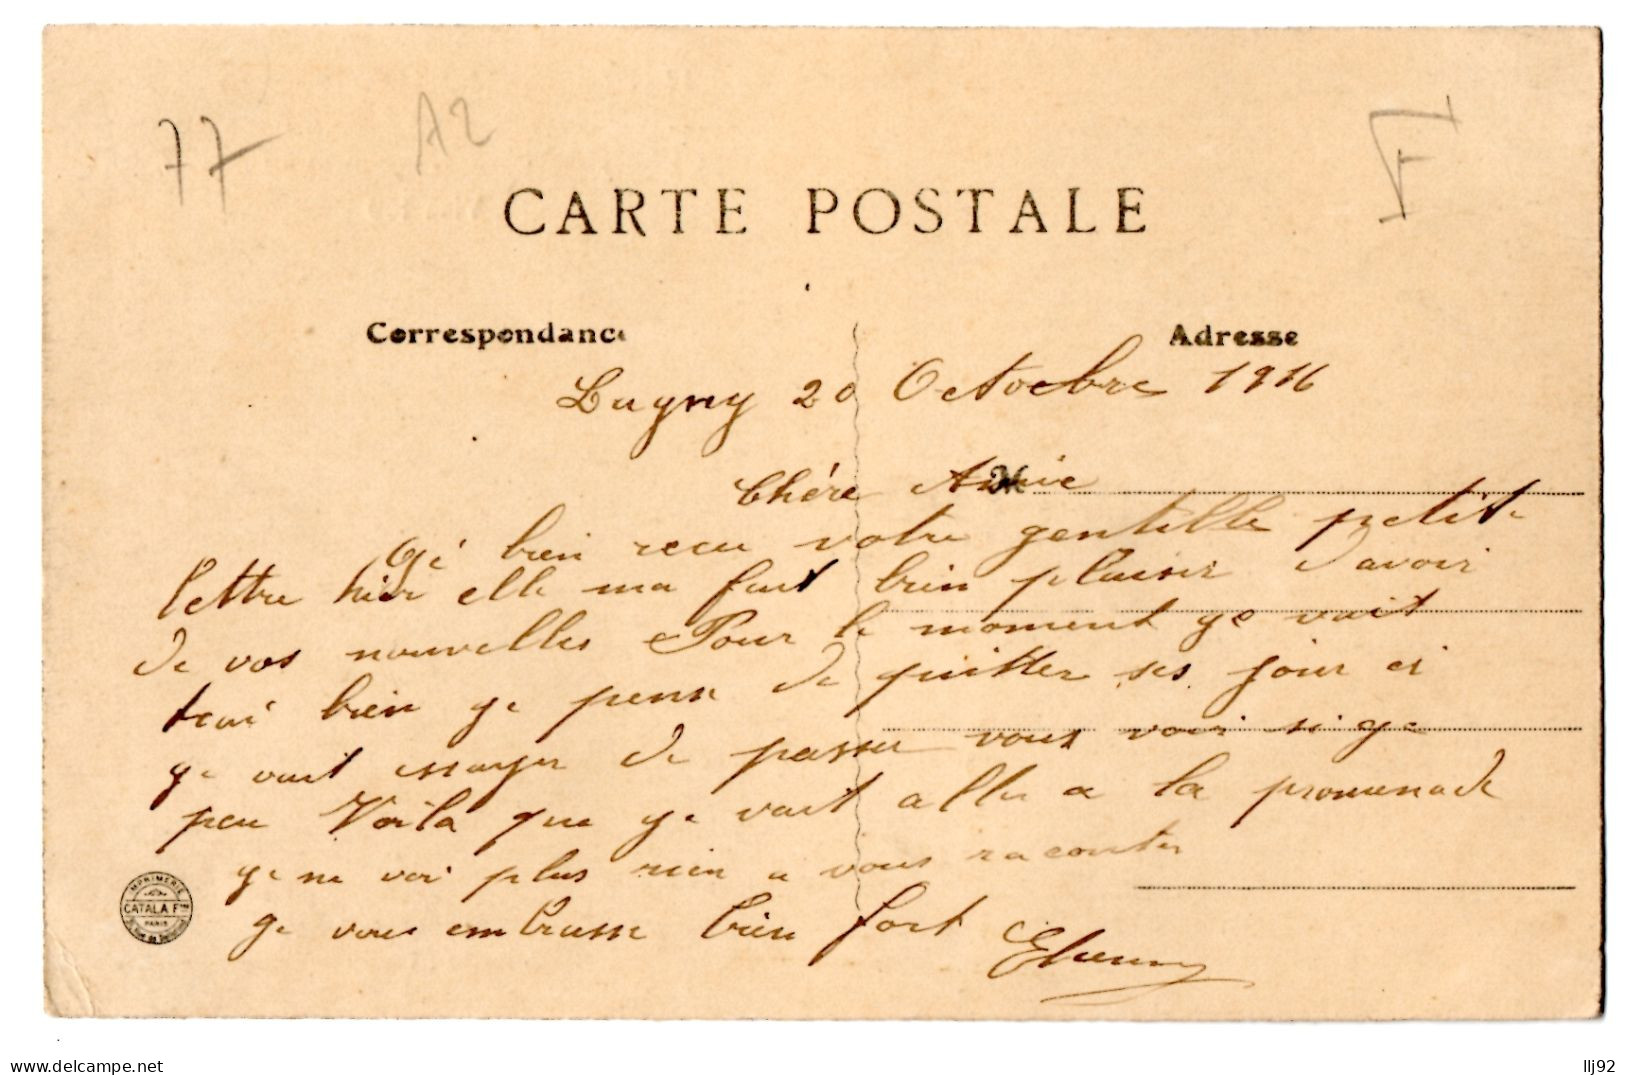 77
A2
F
CARTE POSTALE
Correspondance
Adresse
Lugny 20 Octobre 1916
M
Chére Amie
Gé bien recu votre gentille petite
lettre hier elle ma fait bien plaisir davoir
de vos nouvelles Pour le moment ge vait
trai bien ge pense de quitter ses jour ci
ge vait essayer de passer vous voir si ge
peu Voila que ge vait aller a la promenade
ge ne voi plus rien a vous raconter
ge vous embrasse bien fort
IMPRIMERIE
CATALA Fres
PARIS
www.delcampe.net
llj92